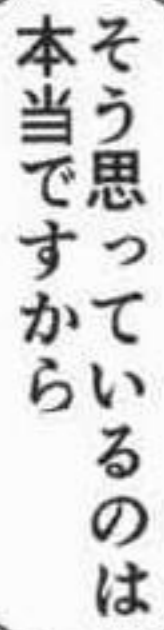 そう思っているのは
本当ですから